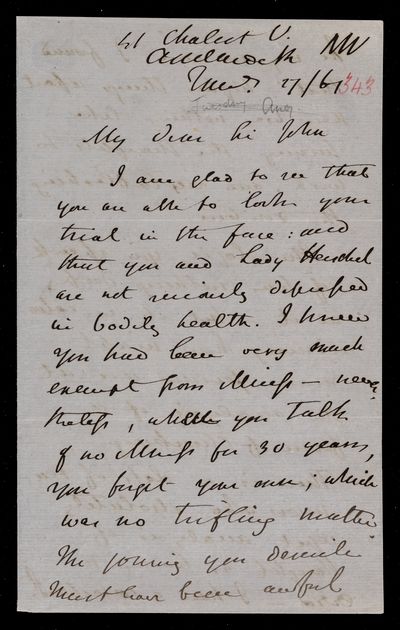 41 Chalcot V.
NW
Tues. 27/67 343
Tuesday Aug.
My dear Sir John
I am glad to see that
you are able to look your
trial in the face: and
that you and Lady Herschel
are not seriously depressed
in bodily health. I knew
you had been very much
exempt from illness — never
theless, when you talk
of no illness for 30 years,
you forget your own; which
was no trifling matter
The journey you describe
must have been awful